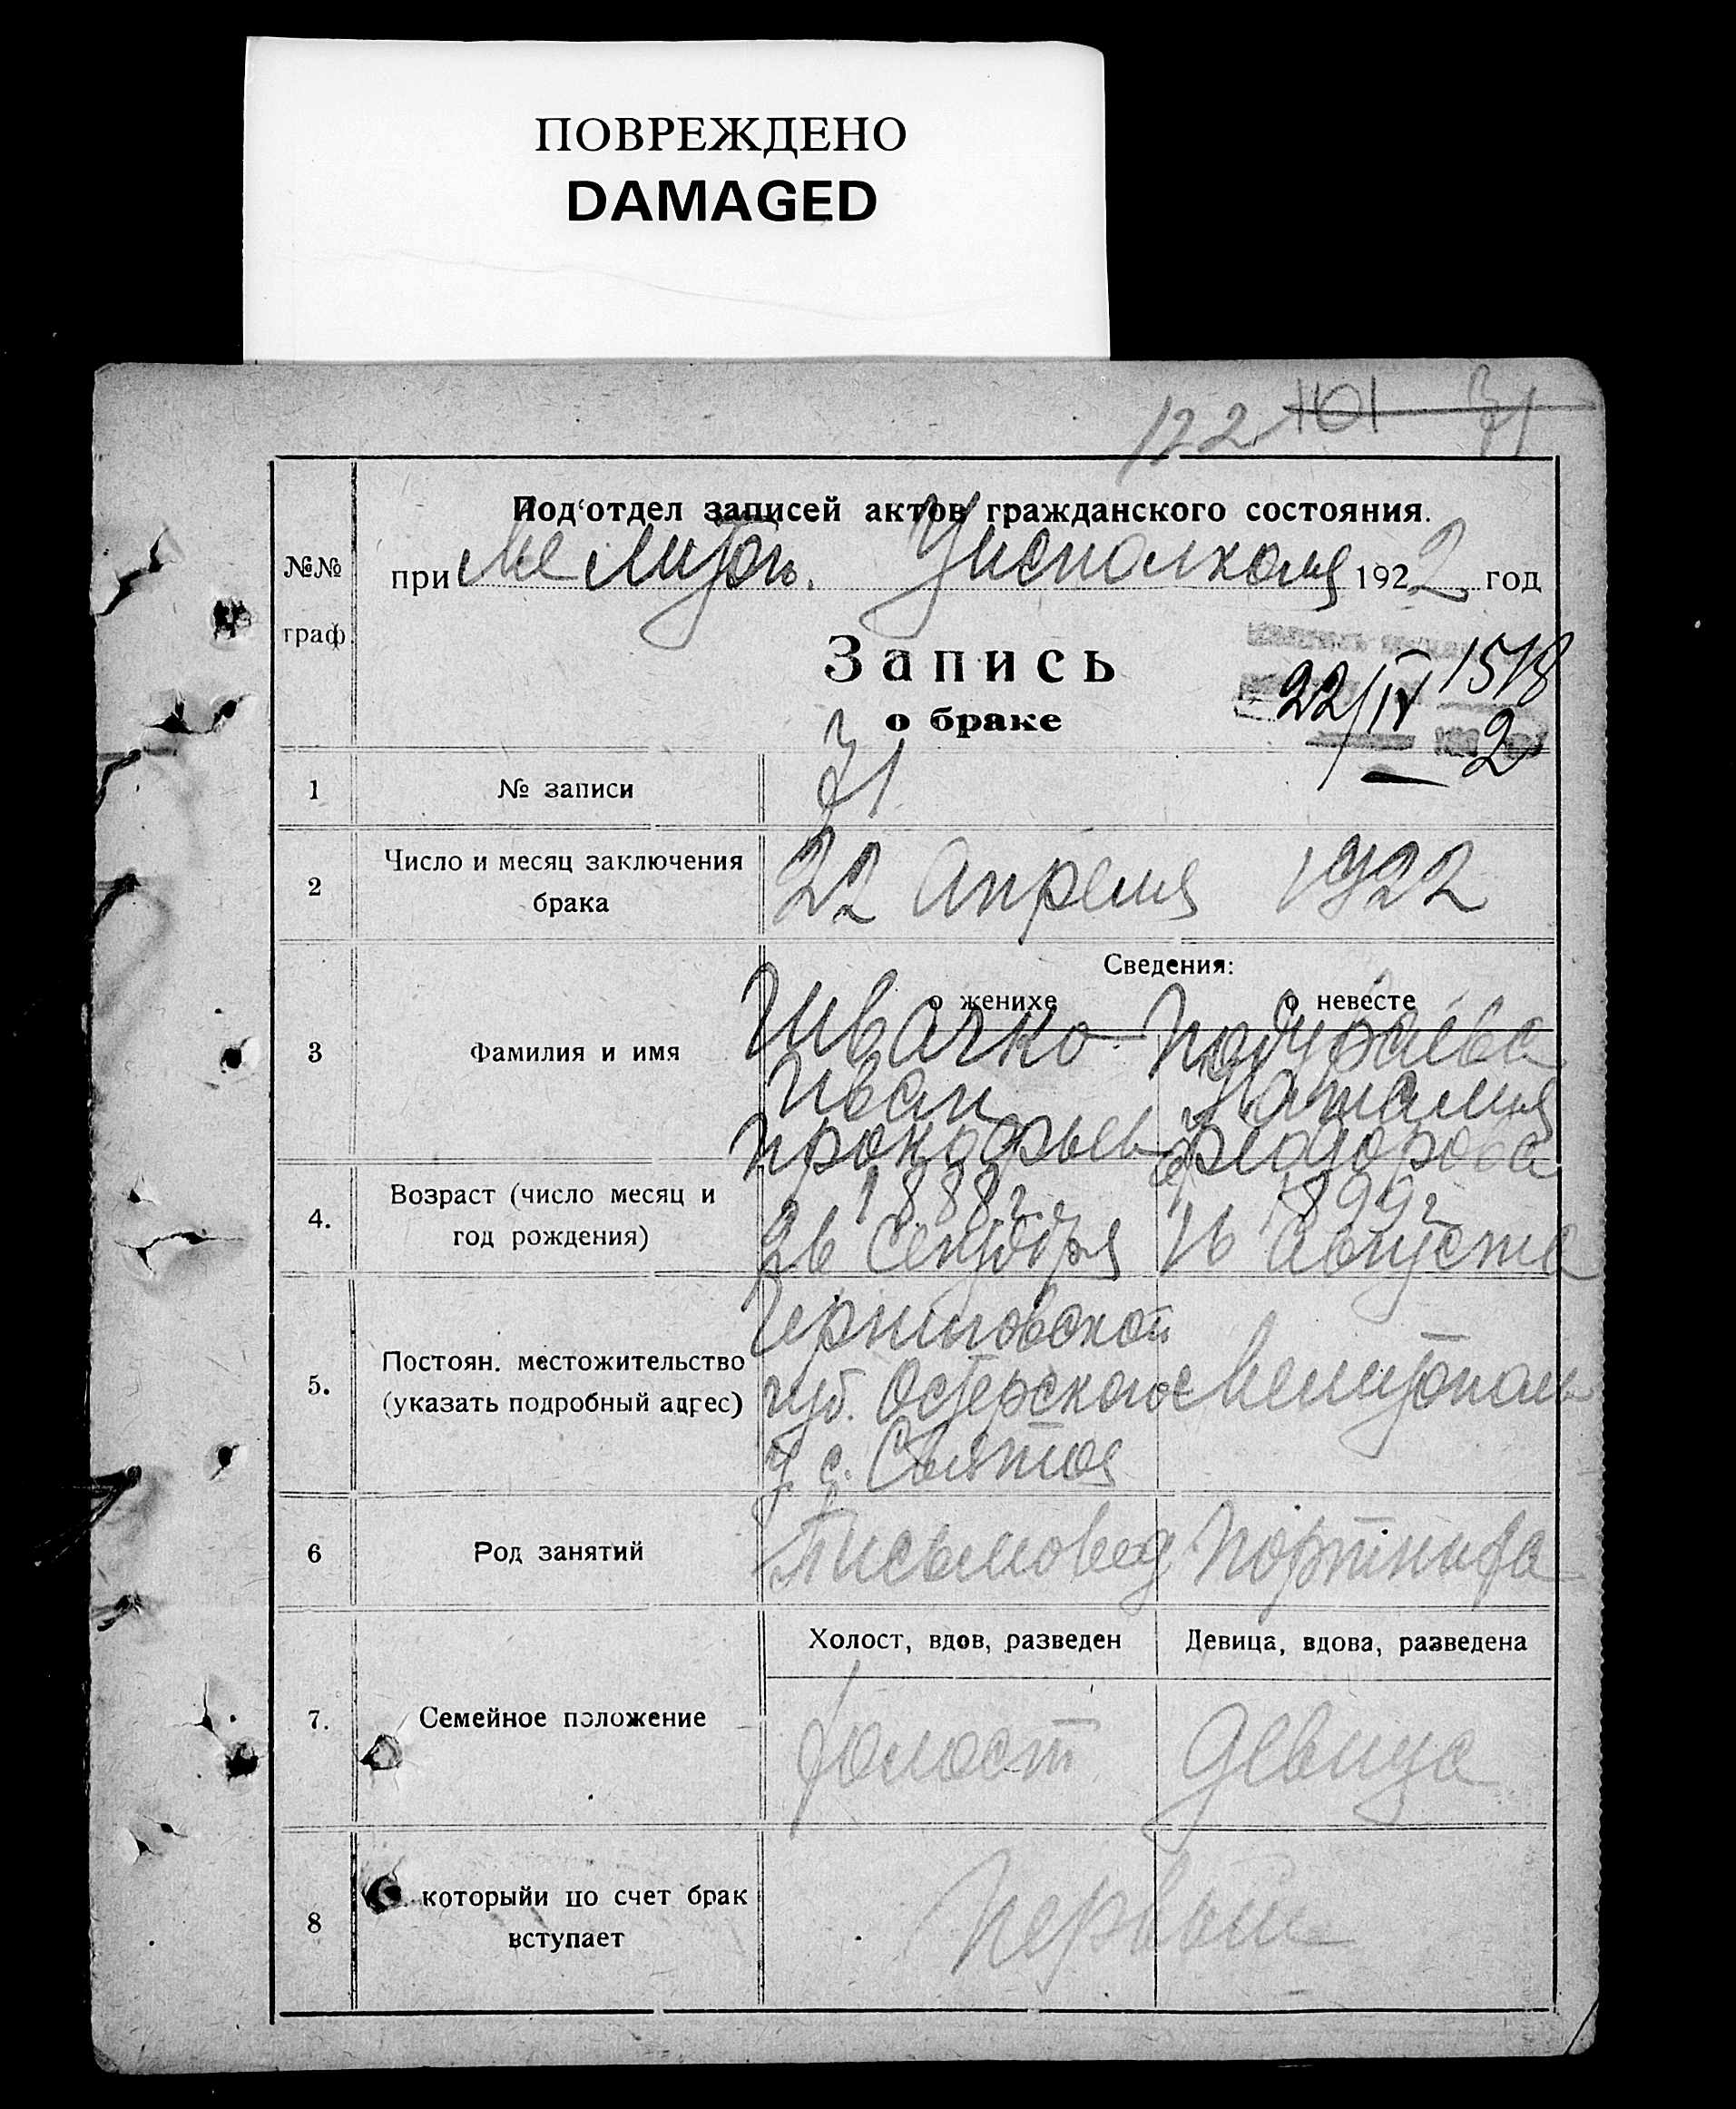 ПОВРЕЖДЕНО
DAMAGED
122 101 71
Подотдел записей актов гражданского состояния.
№№ граф.
при Мелитоп. Уисполкома 1922 год
Запись
о браке
22/IV 1518
2
1 № записи 71
2 Число и месяц заключения брака 22 Апреля 1922
Сведения:
о женихе о невесте
3 Фамилия и имя
Ивачко Подураева
Иван Наталия
Прокофьев Феодорова
4. Возраст (число месяц и год рождения)
1888 г. 1899 г
26 Сентября 16 Августа
5. Постоян. местожительство (указать подробный адрес)
Черниговской
губ. Остерского Мелитополь
у. с. Святое
6 Род занятий Письмовод Портниха
Холост, вдов, разведен Девица, вдова, разведена
7. Семейное положение холост девица
8 которыйи по счет брак вступает Первый